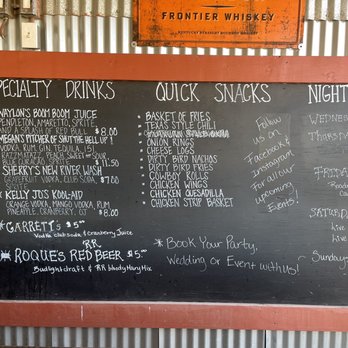 FRONTIER WHISKEY
PECIALTY DRINKS
WAYLON'S BOOM BOOM JUICE
PENDLETON, AMARETTO, SPRITE
AND A SPLASH OF RED BULL $8.00
MEGAN'S PITCHER OF SHUT THE HELL UP!
VODKA, RUM, GIN, TEQUILA, 151
RAZZMATAZZ, PEACH, SWEET & SOUR
BLUE CURACAO, SPRITE $11.50
SHERRY'S NEW RIVER WASH
GRAPEFRUIT VODKA, CLUB SODA $7.00
SPRITE
KELLY JO'S KOOL-AID
ORANGE VODKA, MANGO VODKA, RUM
PINEAPPLE, CRANBERRY, OJ $8.00
* GARRETT'S $5.00
Vodka club soda & cranberry Juice
RR
* ROQUE'S RED BEER $5.00
Budlight draft & RR bloody Mary Mix
QUICK SNACKS
• BASKET OF FRIES
• TEXAS STYLE CHILI
• ONION RINGS
• CHEESE LOGS
• DIRTY BIRD NACHOS
• DIRTY BIRD FRIES
• COWBOY ROLLS
• CHICKEN WINGS
• CHICKEN QUESADILLA
• CHICKEN STRIP BASKET
Follow
us on
Facebook &
Instagram
For all our
upcoming
Events!
* Book Your Party,
Wedding or Event with us!
NIGHT
WEDNES
THURS
FRIDA
SATURDA
Live
Live
Sundays